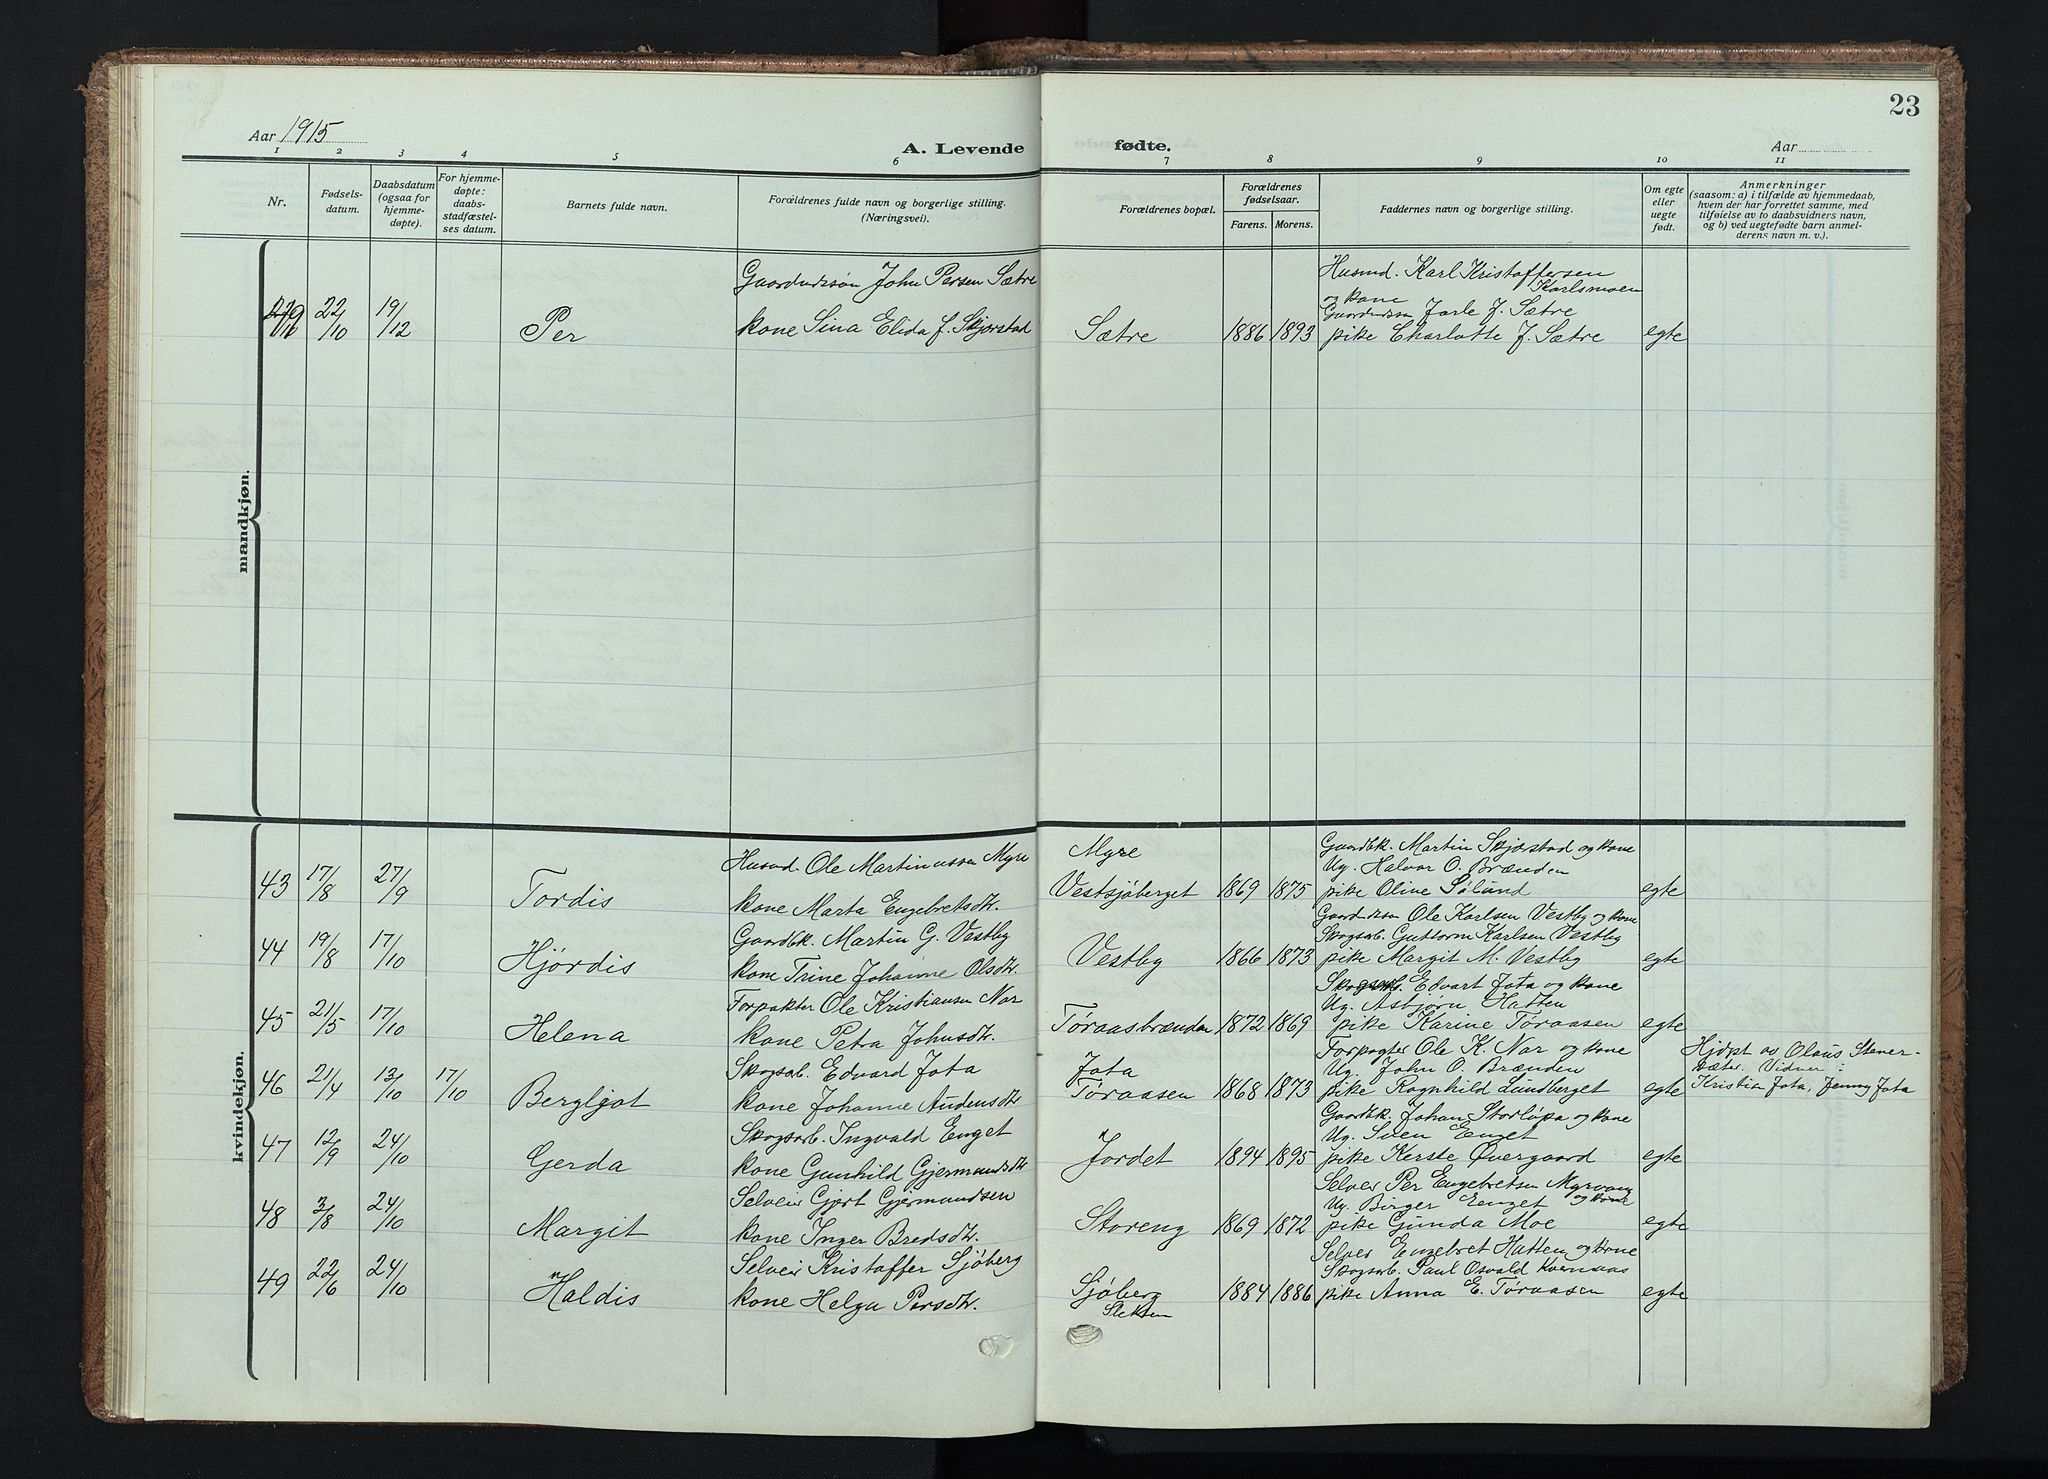 23
Aar 1915
A. Levende
fødte.
Aar
1 2 3 4 5 6 7 8 9 10 11
Nr.
Fødsels-
datum.
Daabsdatum
(ogsaa for
hjemme-
døpte).
For hjemme-
døpte:
daabs-
stadfæstel-
ses datum.
Barnets fulde navn.
Forældrenes fulde navn og borgerlige stilling.
(Næringsvei).
Forældrenes bopæl.
Forældrenes
fødselsaar.
Farens. Morens.
Faddernes navn og borgerlige stilling.
Om egte
eller
uegte
født.
Anmerkninger
(saasom: a) i tilfælde av hjemmedaab,
hvem der har forrettet samme, med
tilføielse av to daabsvidners navn,
og b) ved uegtefødte barn anmel-
derens navn m. v.).
mandkjøn.
22/10 19/12 Per
Gaardmdsøn John Persen Sætre
kone Sina Elida f. Skjærstad
Sætre 1886 1893
Husmd. Karl Kristoffersen
Karlsmoen
og kone
Gaardmdssøn Jarle J. Sætre
pike Charlotte J. Sætre
egte
kvindekjøn.
43 17/8 27/9 Tordis
Husmd. Ole Martinussen Myre
kone Marta Engebretsdtr.
Myre
Vestsjøberget 1869 1875
Gaardbk. Martin Skjærstad og kone
Ug. Halvor O. Brænden
pike Oline Sølund
egte
44 19/8 17/10 Hjørdis
Gaardbk. Martin G. Vestby
kone Trine Johanne Olsdtr.
Vestby 1866 1873
Gaardmdssøn Ole Karlsen Vestby og kone
Skogsarb. Guttorm Karlsen Vestby
pike Margit M. Vestby
egte
45 21/5 17/10 Helena
Forpakter Ole Kristiansen Nor
kone Petra Johnsdtr.
Tøraasbrænden 1872 1869
Skogsarb. Edvart Jota og kone
Ug. Asbjørn Hatten
pike Karine Tøraasen
egte
46 21/4 13/10 17/10 Bergljot
Skogsarb. Edvard Jota
kone Johanne Audensdtr
Jota
Tøraasen 1868 1873
Forpagter Ole K. Nor og kone
Ug. John O. Brænden
pike Ragnhild Lundberget
egte
Hjdpt av Olaus Stener-
sæter. Vidner:
Kristian Jota, Jenny Jota
47 12/9 24/10 Gerda
Skogsarb. Ingvald Enget
kone Gunhild Gjermundsdtr
Jordet 1894 1895
Gaardbk. Johan Storløpa og kone
Ug. Sven Enget
pike Kerste Øvergaard
egte
48 3/8 24/10 Margit
Selveir Gjert Gjermundsen
kone Inger Bredsdtr.
Storeng 1869 1872
Selveir Per Engebretsen Myrvang
og kone
Ug. Birger Enget
pike Gunda Moe
egte
49 22/6 24/10 Haldis
Selveir Kristoffer Sjøberg
kone Helga Persdtr.
Sjøberg 1884 1886
Selveir Engebret Hatten og kone
Skogsarb. Paul Osvald Kvernaas
pike Anna E. Tøraasen
egte